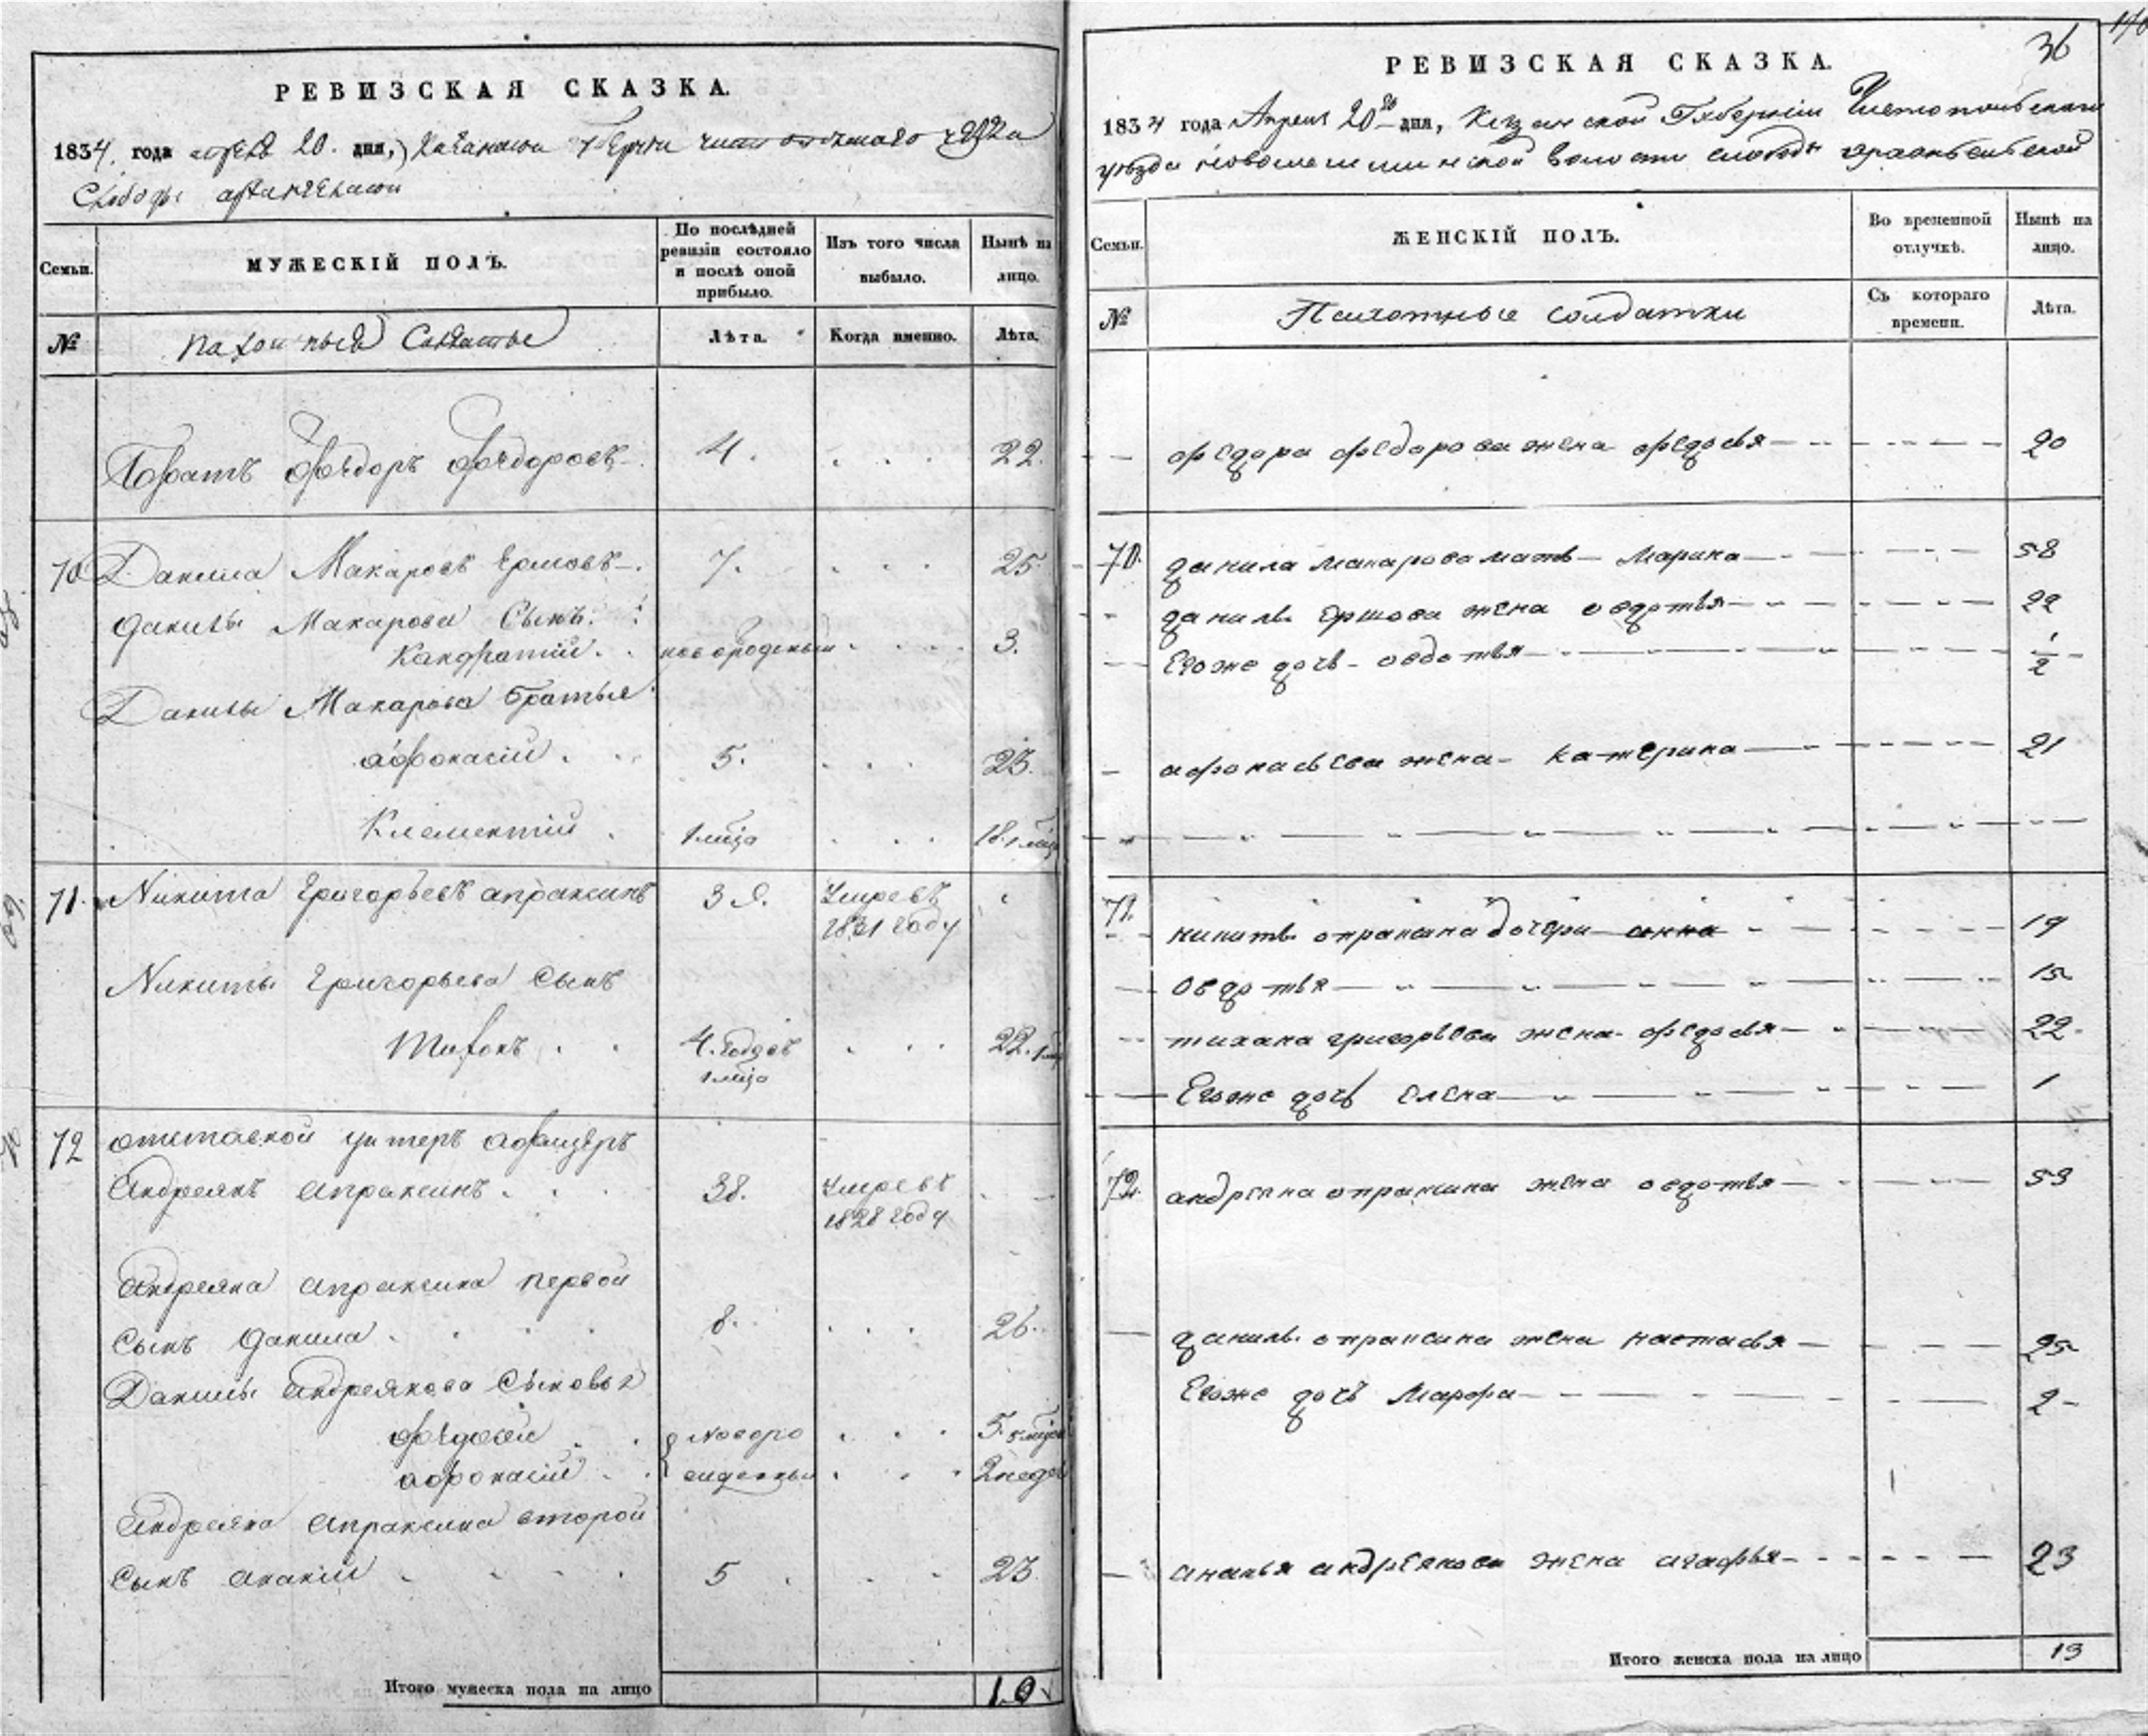 РЕВИЗСКАЯ СКАЗКА.
1834. года апреля 20. дня, Казанской Губернии чистопольскаго уезда
Слободы архангельской
Семьи.
МУЖЕСКІЙ ПОЛЪ.
По послѣдней ревизіи состояло и послѣ оной прибыло.
Изъ того числа выбыло.
Нынѣ на лицо.
№
пахотные Солдаты
Лѣта.
Когда именно.
Лѣта.
Братъ Федоръ Федоровъ 4. 22.
70 Данила Макаровъ 7. 25
Данилы Макарова Сынъ:
Кандратій новорожденный 3.
Данилы Макарова братья
афонасій 5. 23.
Клементій 1 мца 18. 1 мца
71. Никита Григорьевъ апраксинъ 39. Умревъ
1831 году
Никиты Григорьева Сынъ
Тихонъ 4. годовъ 22. 1 мца
1 мца
72 отставной унтеръ афицеръ
Андреянъ апраксинъ 38. Умревъ
1828 году
Андреяна апраксина первой
Сынъ Данила 8. 26.
Данилы Андреянова Сыновья
Федосей Новоро 5. мцов
афонасій жденныи 2 недел
Андреяна апраксина второй
Сынъ 5 23.
Итого мужеска пола на лицо 10
РЕВИЗСКАЯ СКАЗКА.
36
1834 года Апреля 20го дня, Казанской Губерніи Чистопольскаго
уѣзда новошешминской волости слободы архангельской
Семьи.
ЖЕНСКІЙ ПОЛЪ.
Во временной отлучкѣ.
Нынѣ на лицо.
№
Пахотные солдатки
Съ котораго времени.
Лѣта.
федора федорова жена федосья 20
70. данила макарова мать Марина 58
данилы ершова жена овдотья 22
Егоже дочь овдотья 1/2
афонасьева жена катерина 21
71. никиты опраксина дочери анна 19
Овдотья 15
тихана григорьева жена федосья 22
Егоже дочь елена 1
72. андреяна опраксина жена овдотья 53
данилы опраксина жена настасья 25
Егоже дочь Марфа 2
ананья андреянова жена агафья 23
Итого женска пола на лицо 13